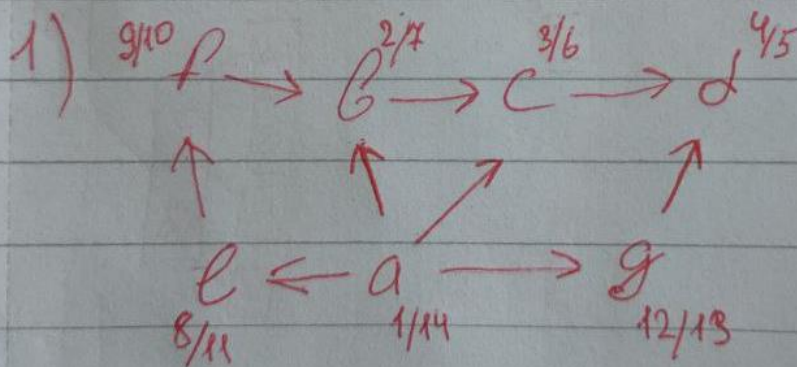 1) 9/10 f → b 2/7 → c 3/6 → d 4/5
e ← a → g
8/11 1/14 12/13